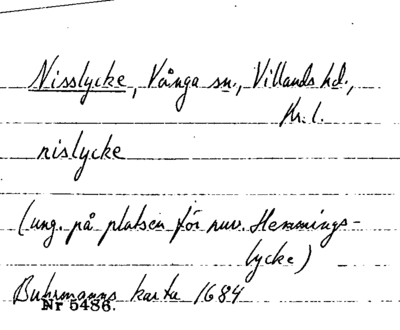 Nisslycke, Vånga sn., Villands hd.,
Kr. l.
nislycke
(ung. på platsen för nuv. Hemmings-
lycke)
Buhrmanns karta 1684
Nr 5486.